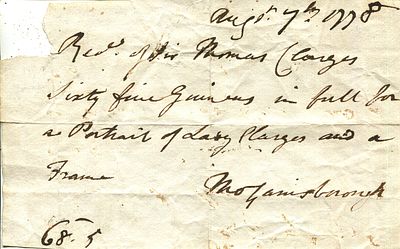 Augst. 7th 1778
Recd. of Sir Thomas Clarges
Sixty five Guineas in full for
a Portrait of Lady Clarges and a
Frame
Tho Gainsborough
68 - 5